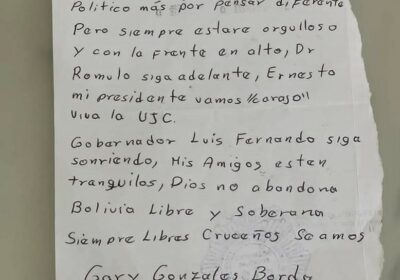 Politico más por pensar diferente
Pero siempre estare orgulloso
y con la frente en alto, Dr
Romulo siga adelante, Ernesto
mi presidente vamos ½carajo"
viva la UJC.
Gobernador Luis Fernando siga
sonriendo, Mis Amigos esten
tranquilos, Dios no abandona
Bolivia Libre y Soberana
Siempre Libres Cruceños Seamos
Gary Gonzales Borda